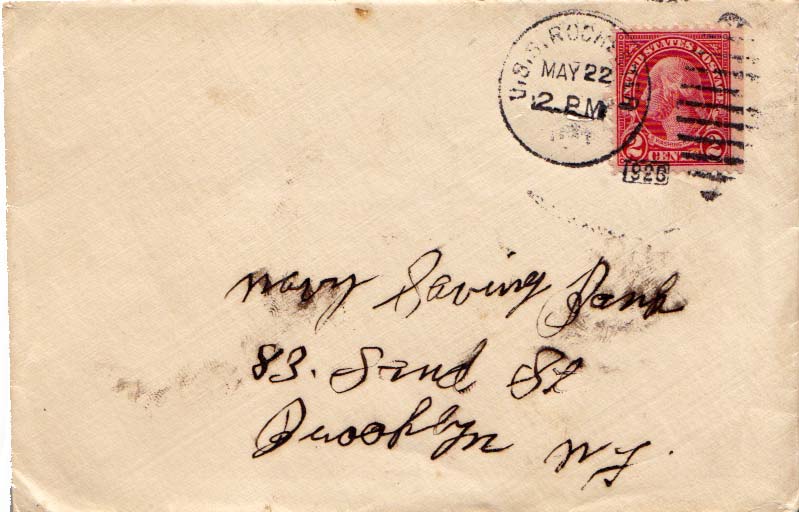 U.S.S. ROCHE
MAY 22
2 PM
UNITED STATES POSTAGE
2 CENTS 2
1926
Navy Saving Bank
83. Sand St
Brooklyn NY.